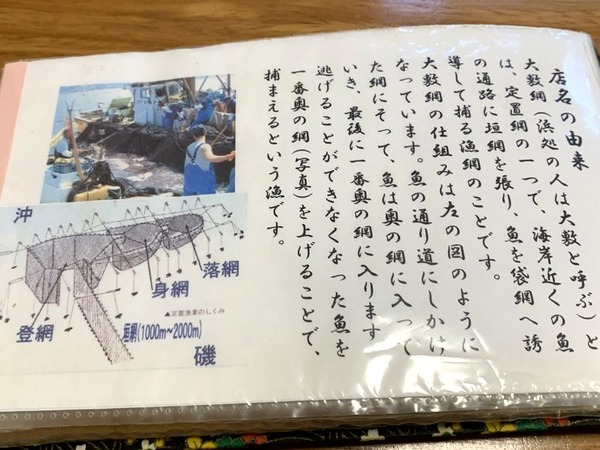 店名の由来
大敷網（浜処の人は大敷と呼ぶ）と
は、定置網の一つで、海岸近くの魚
の通路に垣網を張り、魚を袋網へ誘
導して捕る漁網のことです。
大敷網の仕組みは左の図のように
なっています。魚の通り道にしかけ
た網にそって、魚は奥の網に入って
いき、最後に一番奥の網に入ります
逃げることができなくなった魚を
一番奥の網（写真）を上げることで、
捕まえるという漁です。
沖
落網
身網
▲定置漁業のしくみ
登網
垣網(1000m〜2000m)
磯